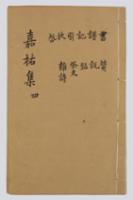 書 贊
譜 說
記 銘
引 祭文
狀 雜詩
啟
嘉祐集 四